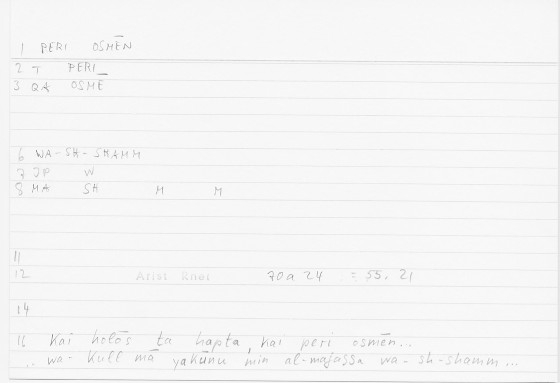 1 PERI OSMĒN
2 T PERI_
3 QA OSMĒ
6 WA-SH-SHAMM
7 JP W
8 MA SH M M
11
12 Arist Rhet 70a 24 = 55. 21
14
16 Kai holōs ta hapta, kai peri osmēn...
.. wa- kull mā yakūnu min al-maǧassa wa- sh-shamm ...